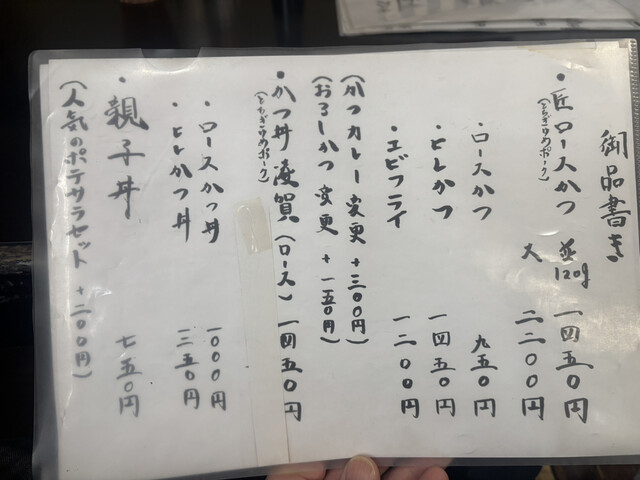 御品書き
・匠ロースかつ 並120g 一四五〇円
(とちぎゆめポーク)
大 二二〇〇円
・ロースかつ 九五〇円
・ヒレかつ 一四五〇円
・エビフライ 一二〇〇円
(かつカレー変更 +三〇〇円)
(おろしかつ変更 +一五〇円)
・かつ丼 滋賀(ロース) 一四五〇円
(とちぎゆめポーク)
・ロースかつ丼 一〇〇〇円
・ヒレかつ丼 一二五〇円
・親子丼 七五〇円
(人気のポテサラセット +二〇〇円)